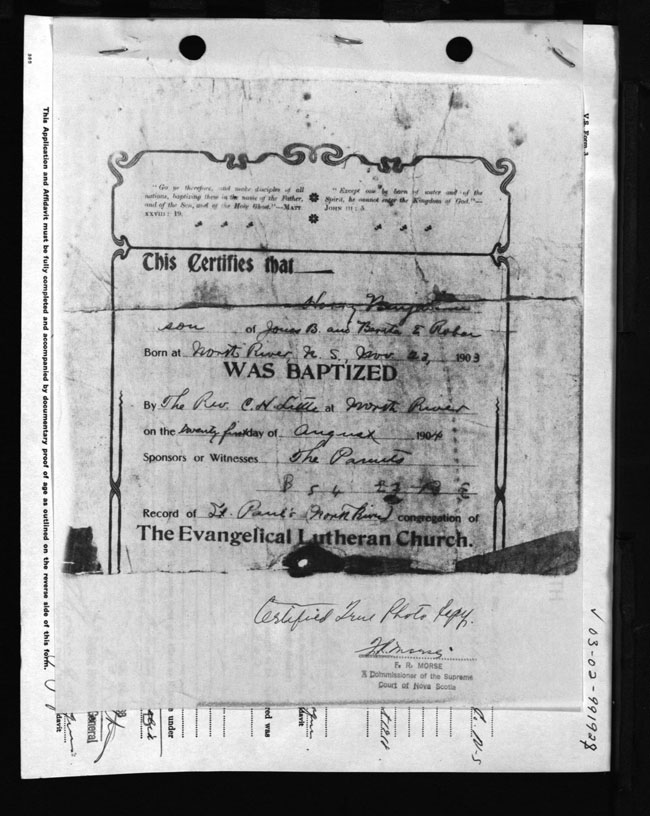 "Go ye therefore, and make disciples of all
nations, baptizing them in the name of the Father,
and of the Son, and of the Holy Ghost."—MATT.
XXVIII: 19.
"Except one be born of water and of the
Spirit, he cannot enter the Kingdom of God."—
JOHN III: 5.
This Certifies that
Harry Benjamin
son of Jonas B. and Bertha E
Born at North River N. S., Nov 22, 1903
WAS BAPTIZED
By The Rev. C. H. Little at North River
on the twenty first day of August 1904
Sponsors or Witnesses The Parents
Record of St. Paul's North River congregation of
The Evangelical Lutheran Church.
Certified True Photo Copy.
F. R. MORSE
A Commissioner of the Supreme
Court of Nova Scotia
This Application and Affidavit must be fully completed and accompanied by documentary proof of age as outlined on the reverse side of this form.
V.S. Form 3
V 03-02-991928
General
davit
e under
ered was
davit
N-S